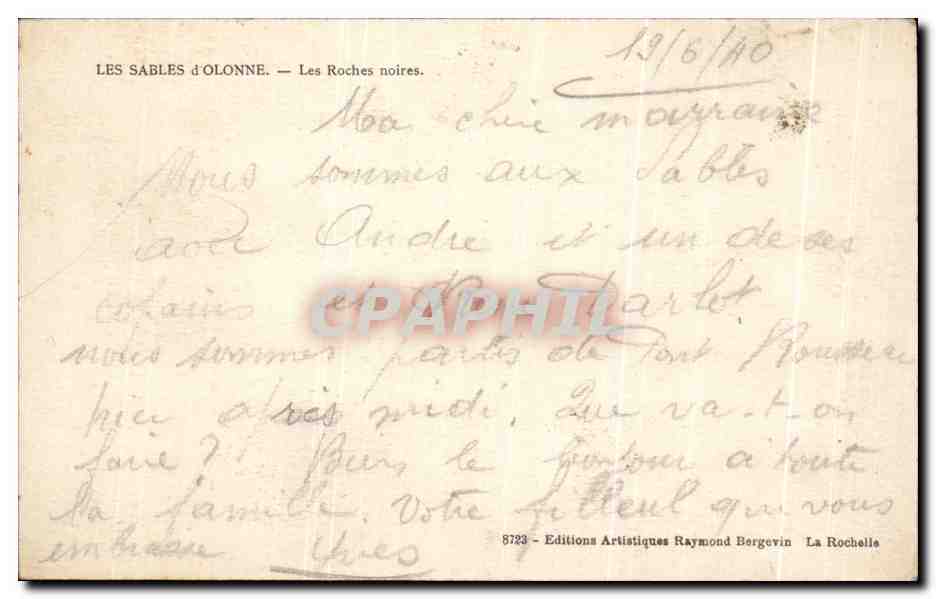 19/6/40
LES SABLES d'OLONNE. — Les Roches noires.
Ma chère marraine
Nous sommes aux Sables
avec André et un de ses
copains et Darlot
CPAPHIL
nous sommes partis de Pont Rousseau
hier après midi. Que va-t-on
faire ? Biens le bonjour à toute
la famille. Votre filleul qui vous
embrasse Yves
8723 - Editions Artistiques Raymond Bergevin La Rochelle